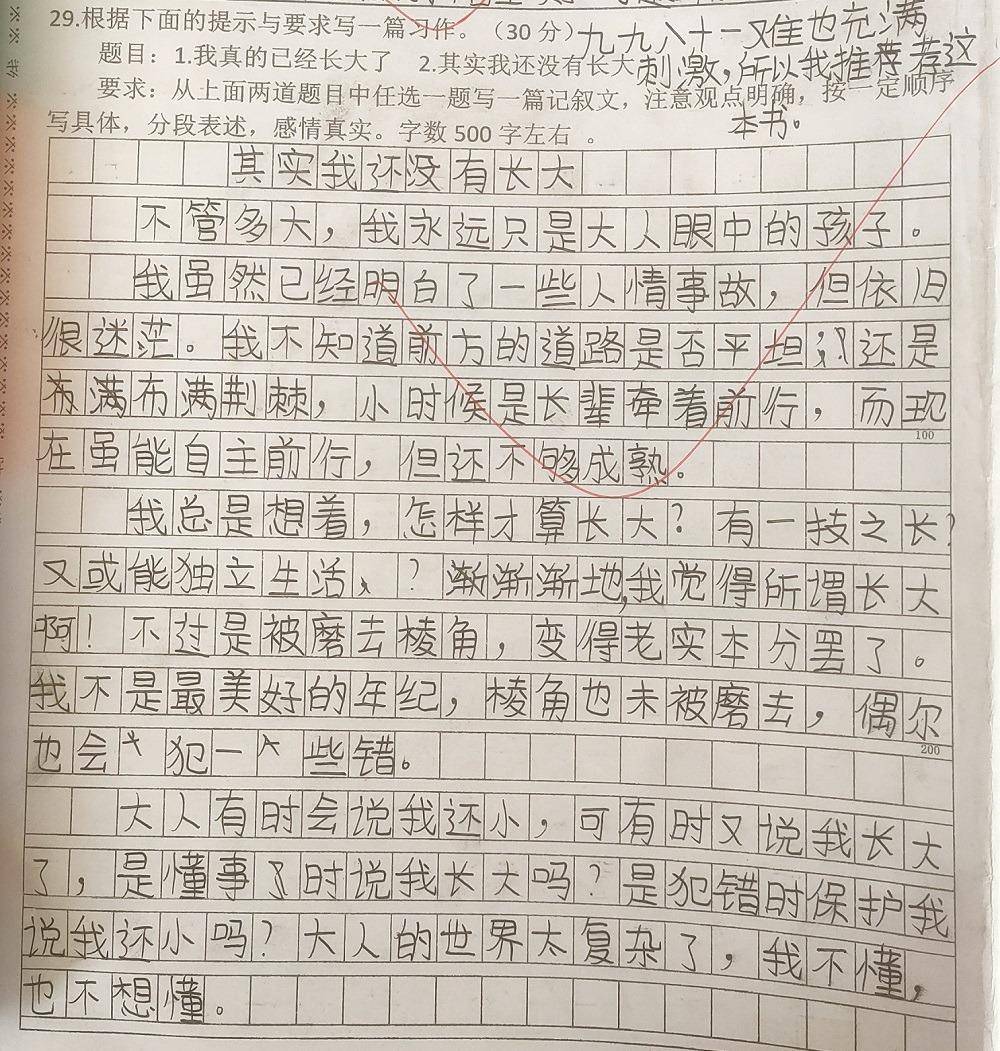 29.根据下面的提示与要求写一篇习作。（30分）九九八十一难也充满
题目：1.我真的已经长大了 2.其实我还没有长大 刺激，所以我推荐荐这
要求：从上面两道题目中任选一题写一篇记叙文，注意观点明确，按一定顺序
本书。
写具体，分段表述，感情真实。字数500字左右 。
其实我还没有长大
不管多大，我永远只是大人眼中的孩子。
我虽然已经明白了一些人情事故，但依旧
很迷茫。我不知道前方的道路是否平坦；还是
布满布满荆棘，小时候是长辈牵着前行，而现
100
在虽能自主前行，但还不够成熟。
我总是想着，怎样才算长大？有一技之长？
又或能独立生活、？渐渐渐地，我觉得所谓长大
啊！不过是被磨去棱角，变得老实本分罢了。
我不是最美好的年纪，棱角也未被磨去，偶尔
200
也会 犯一 些错。
大人有时会说我还小，可有时又说我长大
了，是懂事了时说我长大吗？是犯错时保护我
说我还小吗？大人的世界太复杂了，我不懂，
也不想懂。